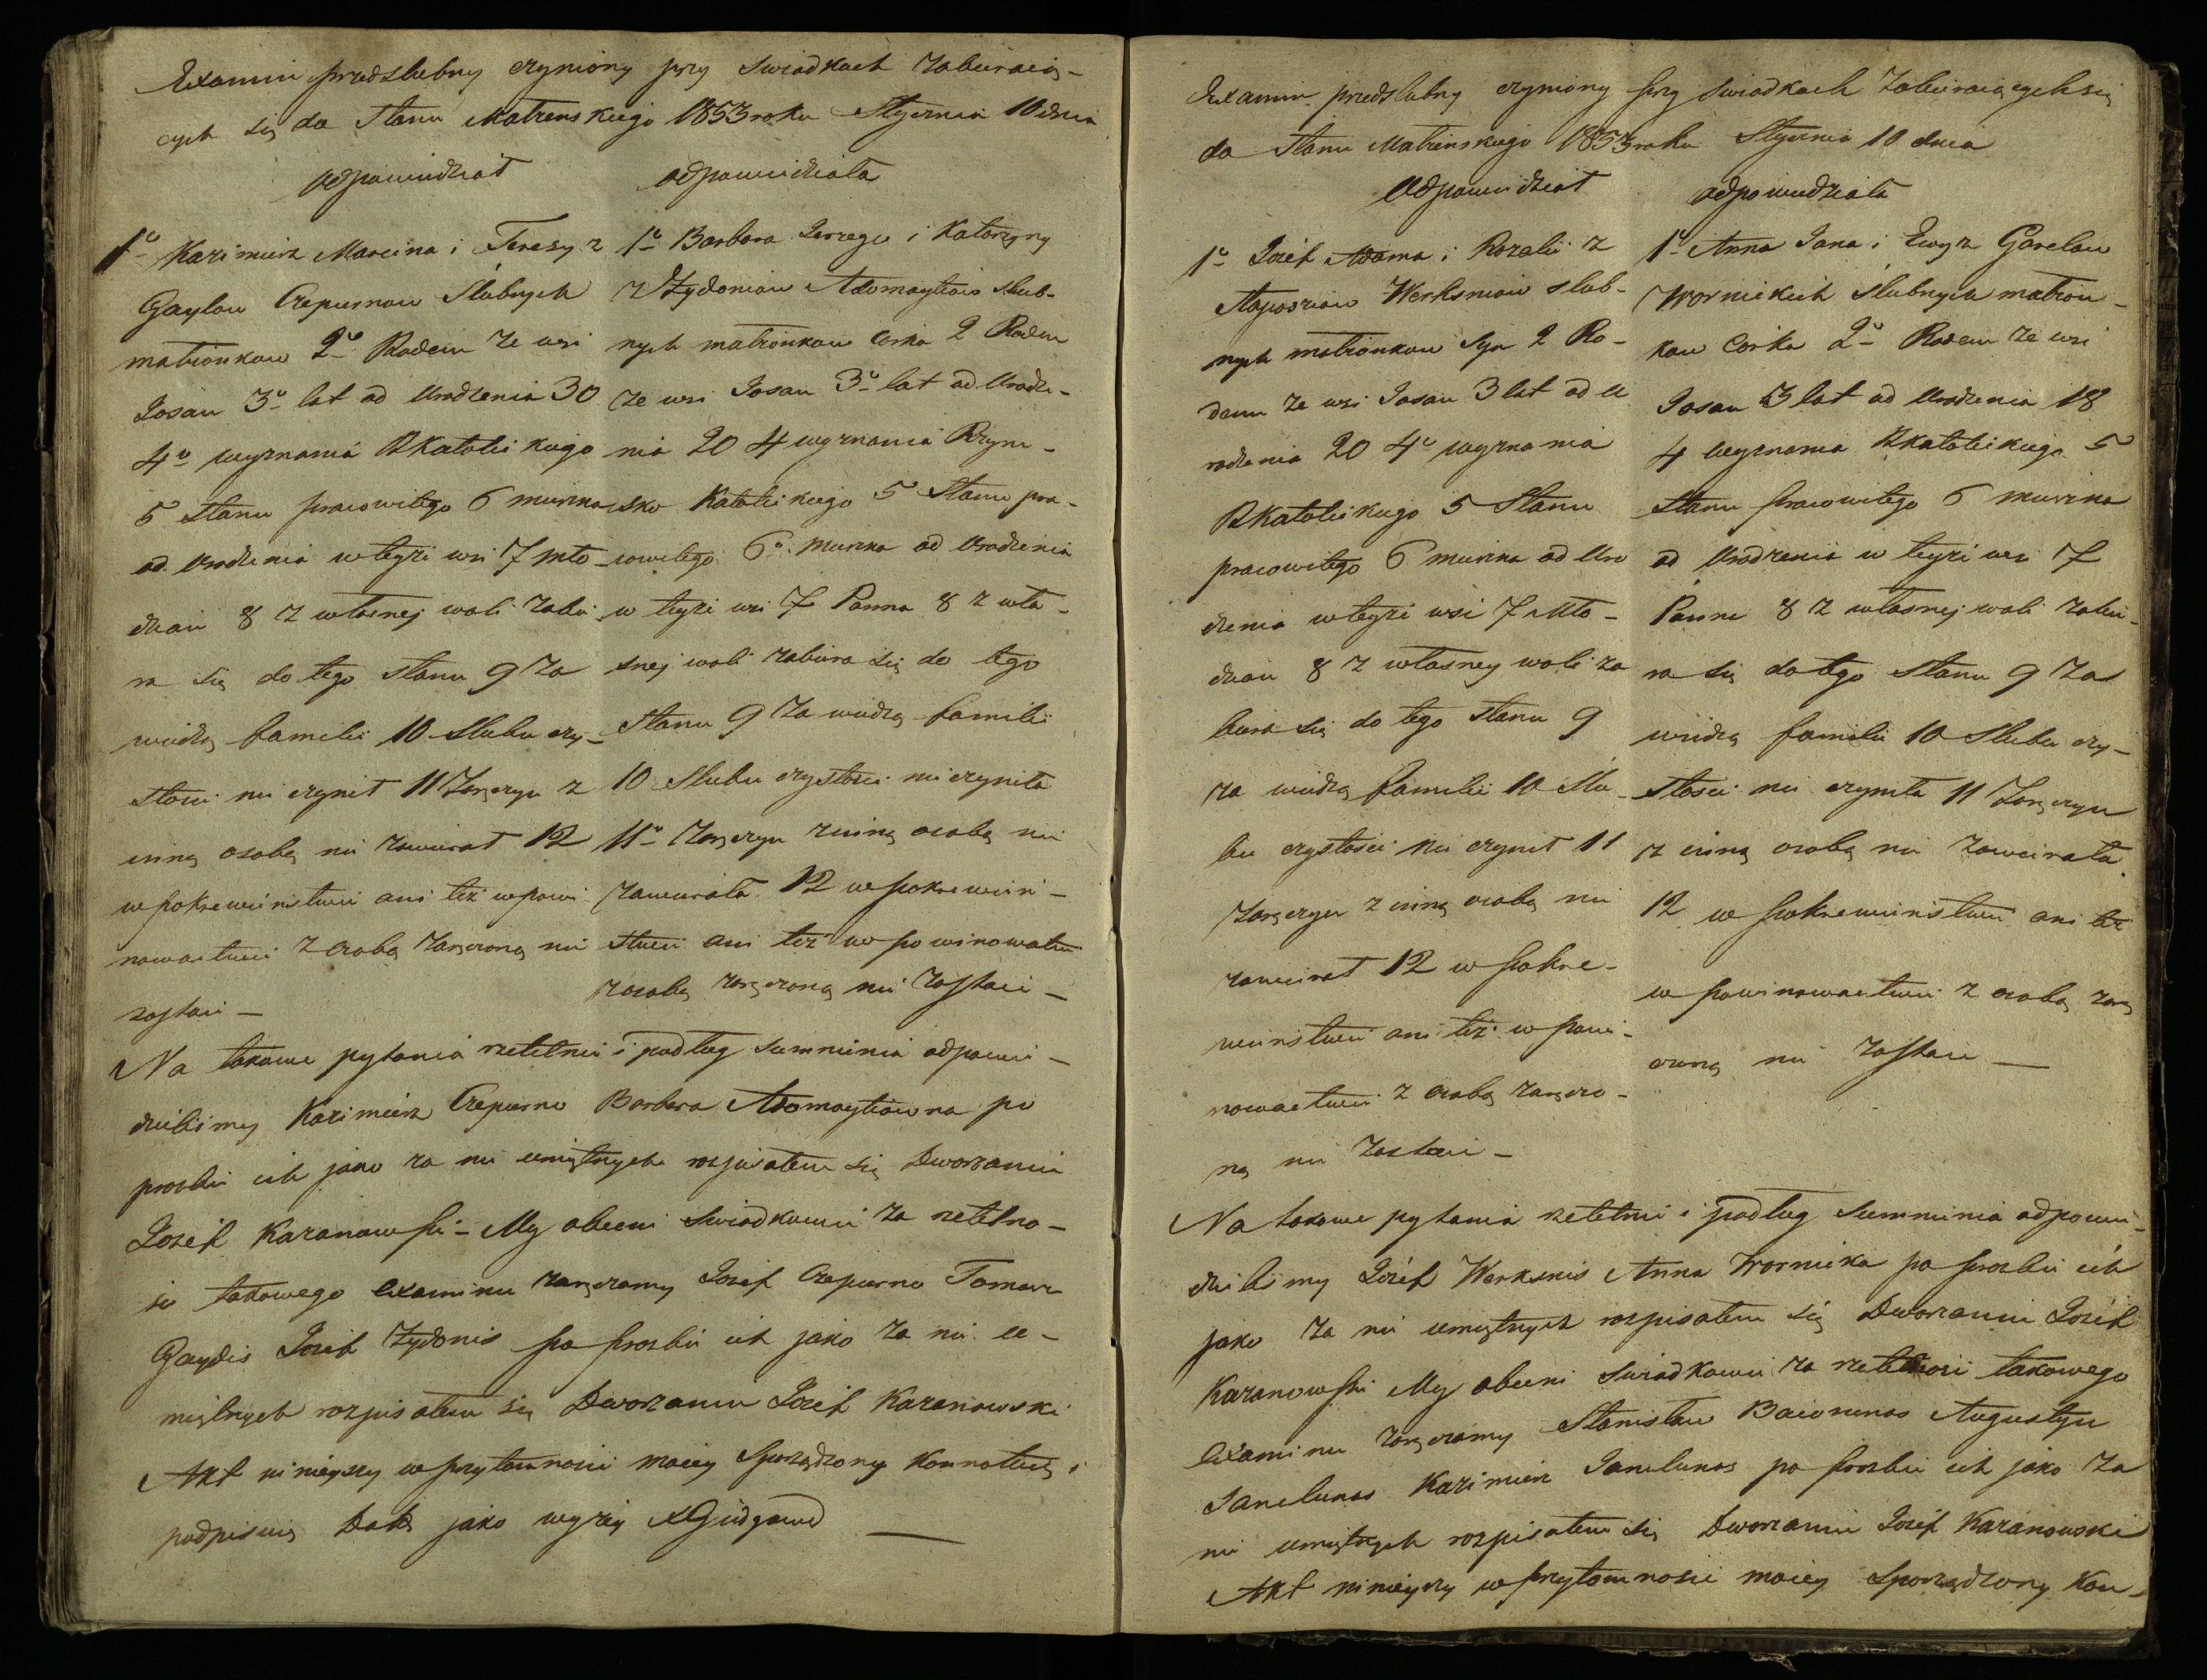 Examin przedslubny czyniony przy swiadkach zabieraią-
cych się do Stanu Małżenskiego 1853 roku Stycznia 10 dnia
odpowiedział
odpowiedziała
1o Kazimierz Marcina i Teresy z
Gaylow Czepurnow Slubnych
małżonkow 2o Rodem ze wsi
Josau 3o lat od Urodzenia 30
4o wyznania RKatolickiego
5 Stanu pracowitego 6 mieszka
od Urodzenia w teyże wsi 7 mło-
dzian 8 z własnej woli zabie-
ra się do tego stanu 9 za
wiedzą familii 10 Slubu czy-
stości nie czynił 11 Zaręczyn z
inną osobą nie zawierał 12
w pokrewieństwie ani też w powi
nowactwie z osobą zaręczoną nie
zostaie -
1o Barbara Jerzego i Katarzyny
z Żydoniow Adomaytiow slub-
nych małżonkow corka 2 Rodem
ze wsi Josau 3o lat od Urodze-
nia 20 4 wyznania Rzym-
sko Katolickiego 5 Stanu pra-
cowitego 6o mieszka od Urodzenia
w teyże wsi 7 Panna 8 z wła-
snej woli zabiera się do tego
Stanu 9 za wiedzą familii
10 Slubu czystości nie czyniła
11o Zaręczyn z inną osobą nie
zawierała 12 w pokrewień-
stwie ani też w powinowactwie
z osobą zaręczoną nie zostaie -
Na takowe pytania rzetelnie i podług summienia odpowie-
dzielismy Kazimierz Czepurno Barbara Adomaytiowna po
prozbie ich jako za nie umiętnych rozpisałem się Dworzanin
Jozef Karanowski - My obecni swiadkowie za rzetelno-
śc takowego examinu zaręczamy Jozef Czepurno Tomasz
Gaydis Jozef Żydonis po prozbie ich jako za nie u-
miętnych rozpisałem się Dworzanin Jozef Karanowski
Akt ninieyszy w przytomności moiey Sporządzony konnotuię i
podpisuię Datą jako wyżey X Giedgowd
Examin przedslubny czyniony przy swiadkach zabieraiących się
do Stanu Małżenskiego 1853 roku Stycznia 10 dnia
Odpowiedział
odpowiedziała
1o Jozef Adama i Rozalii z
Werksniow slub-
nych małżonkow Syn 2 Ro-
dem ze wsi Josau 3 lat od U
rodzenia 20 4o wyznania
RKatolickiego 5 Stanu
pracowitego 6 mieszka od Uro
dzenia w teyże wsi 7 Mło-
dzian 8 z własney woli za
biera się do tego stanu 9
za wiedzą familii 10 Slu-
bu czystości nie czynił 11
Zaręczyn z inną osobą nie
zawierał 12 w pokre-
wieństwie ani też w powi-
nowactwie z osobą zaręczo-
ną nie zostaie -
1o Anna Jana i Ewy z Gavelow
Wornickich slubnych małżon-
kow Corka 2o Rodem ze wsi
Josau 3 lat od Urodzenia 18
4 Wyznania RKatolickiego 5
Stanu pracowitego 6 mieszka
od Urodzenia w teyże wsi 7
Panna 8 z własnej woli zabie-
ra się do tego Stanu 9 Za
wiedzą familii 10 Slubu czy-
stości nie czyniła 11 Zaręczyn
z inną osobą nie zawierała
12 w pokrewieństwie ani też
w powinowactwie z osobą zarę
czoną nie zostaie
Na takowe pytania rzetelnie i podług summienia odpowie-
dzielismy Jozef Werksnis Anna Wornicka po prozbie ich
jako za nie umiętnych rozpisałem się Dworzanin Jozef
Karanowski My obecni swiadkowie za rzetelność takowego
Examinu zaręczamy Stanisław Augustyn
Janelunas Kazimierz Janelunas po prozbie ich jako za
nie umiętnych rozpisałem się Dworzanin Jozef Karanowski
Akt ninieyszy w przytomności moiey Sporządzony kon-